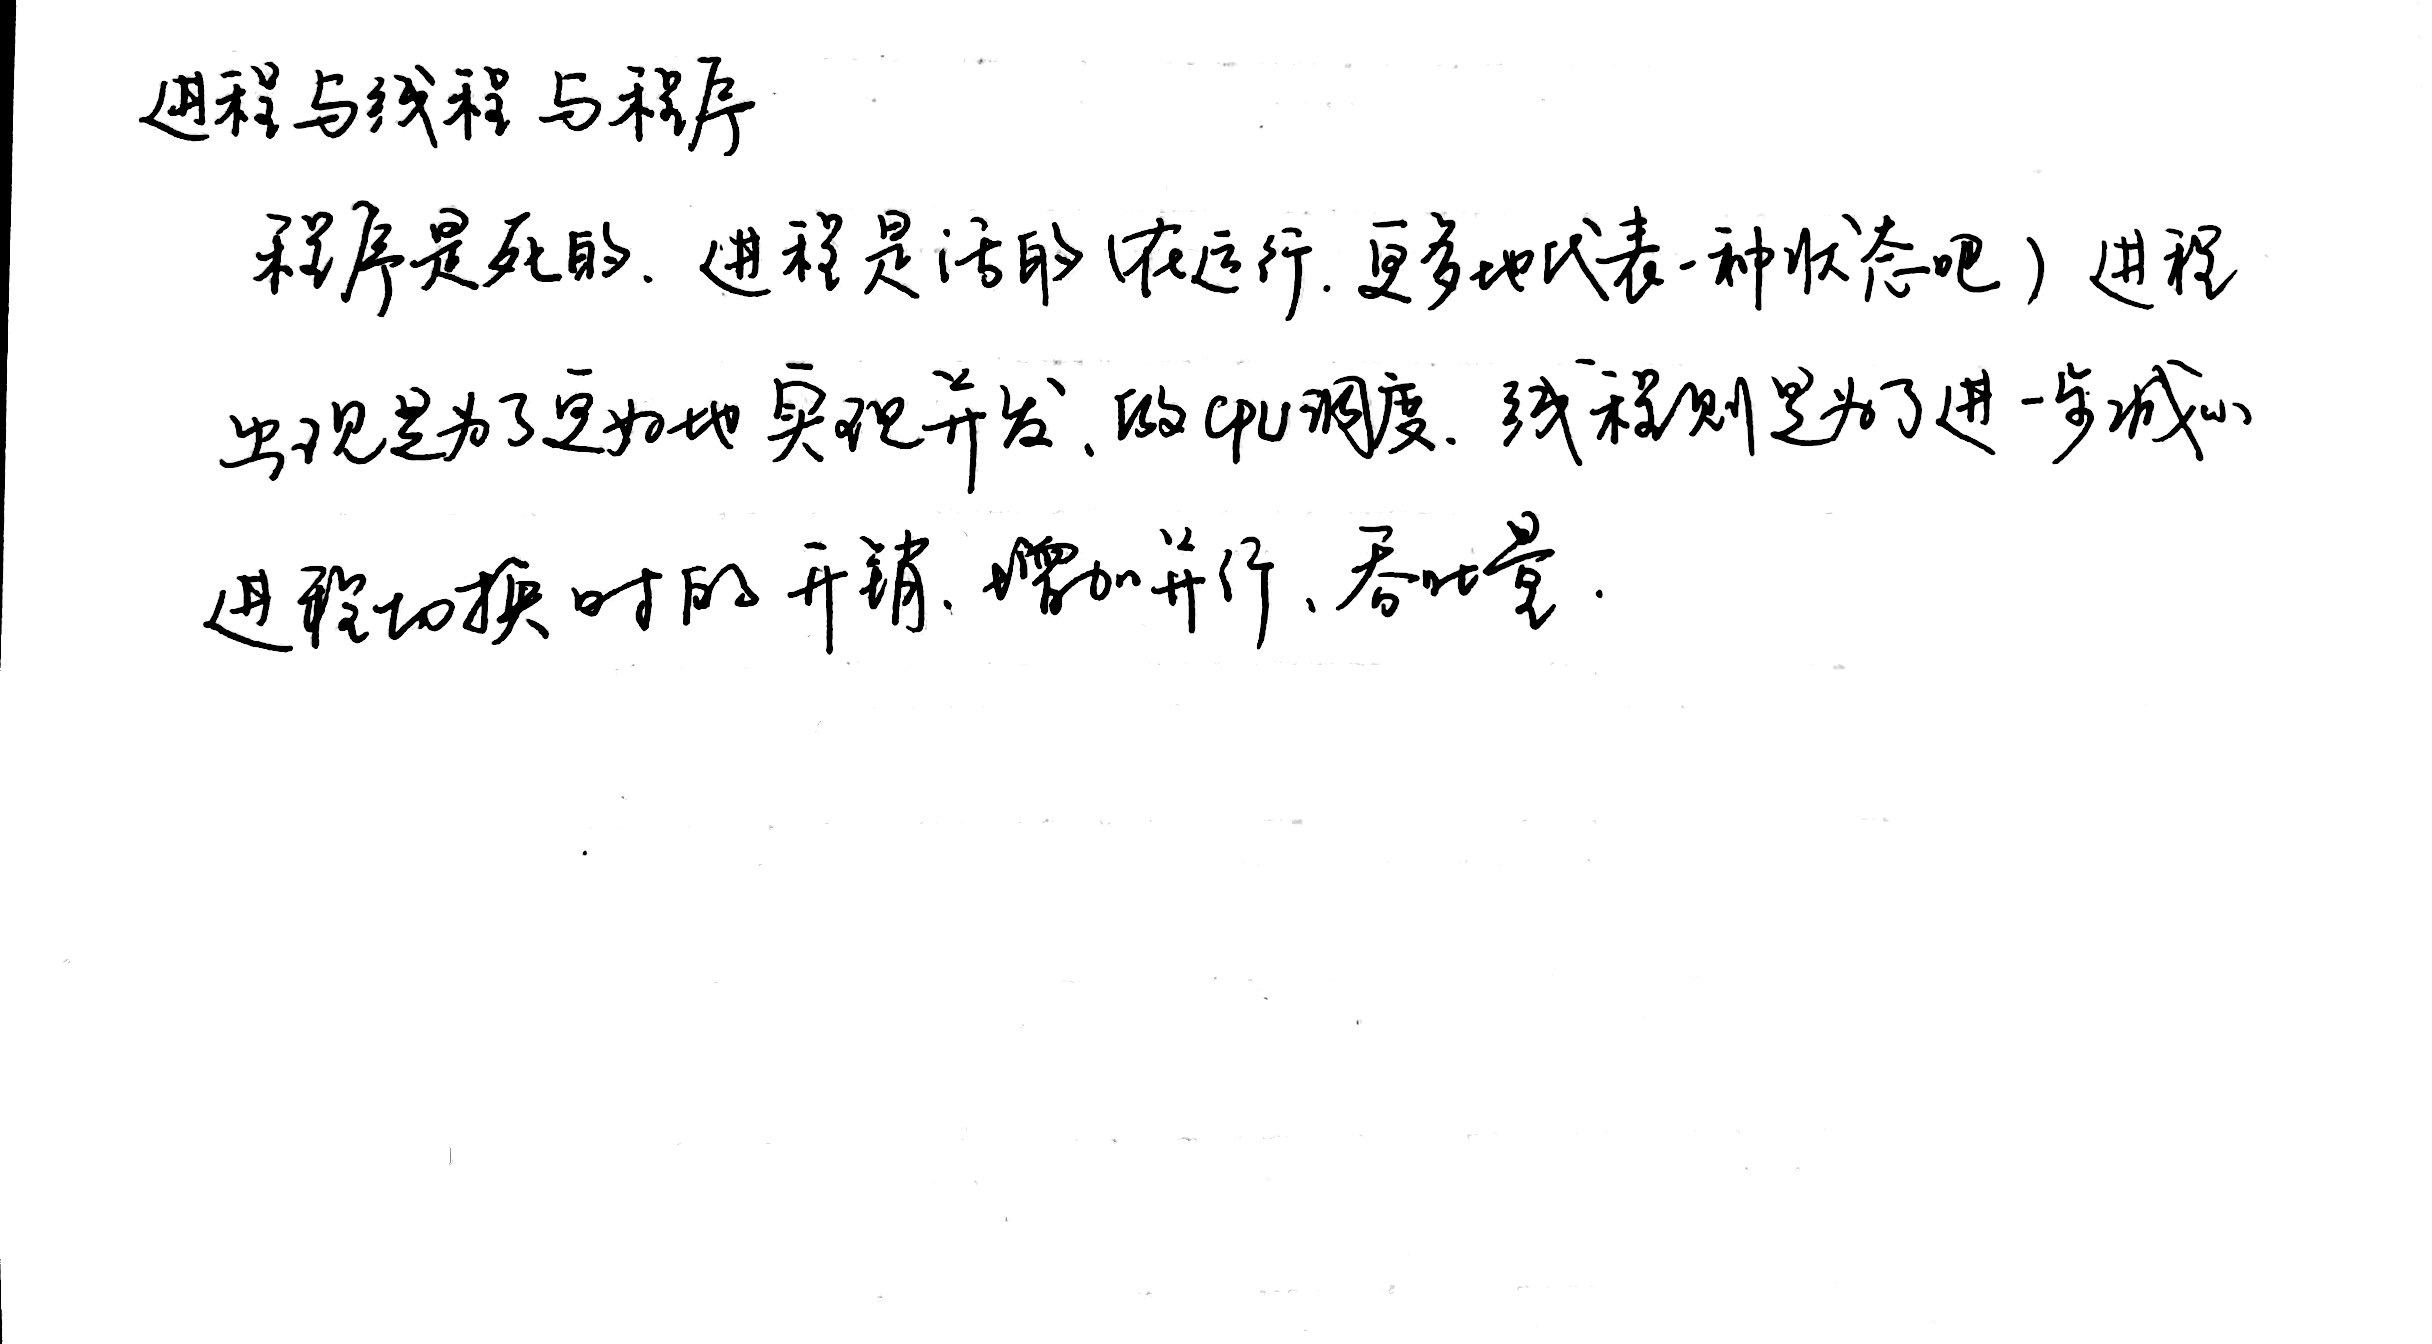 进程与线程与程序
程序是死的. 进程是活的(在运行. 更多地代表一种状态吧) 进程
出现是为了更好地实现并发、做CPU调度. 线程则是为了进一步减小
进程切换时的开销、增加并行、吞吐量.